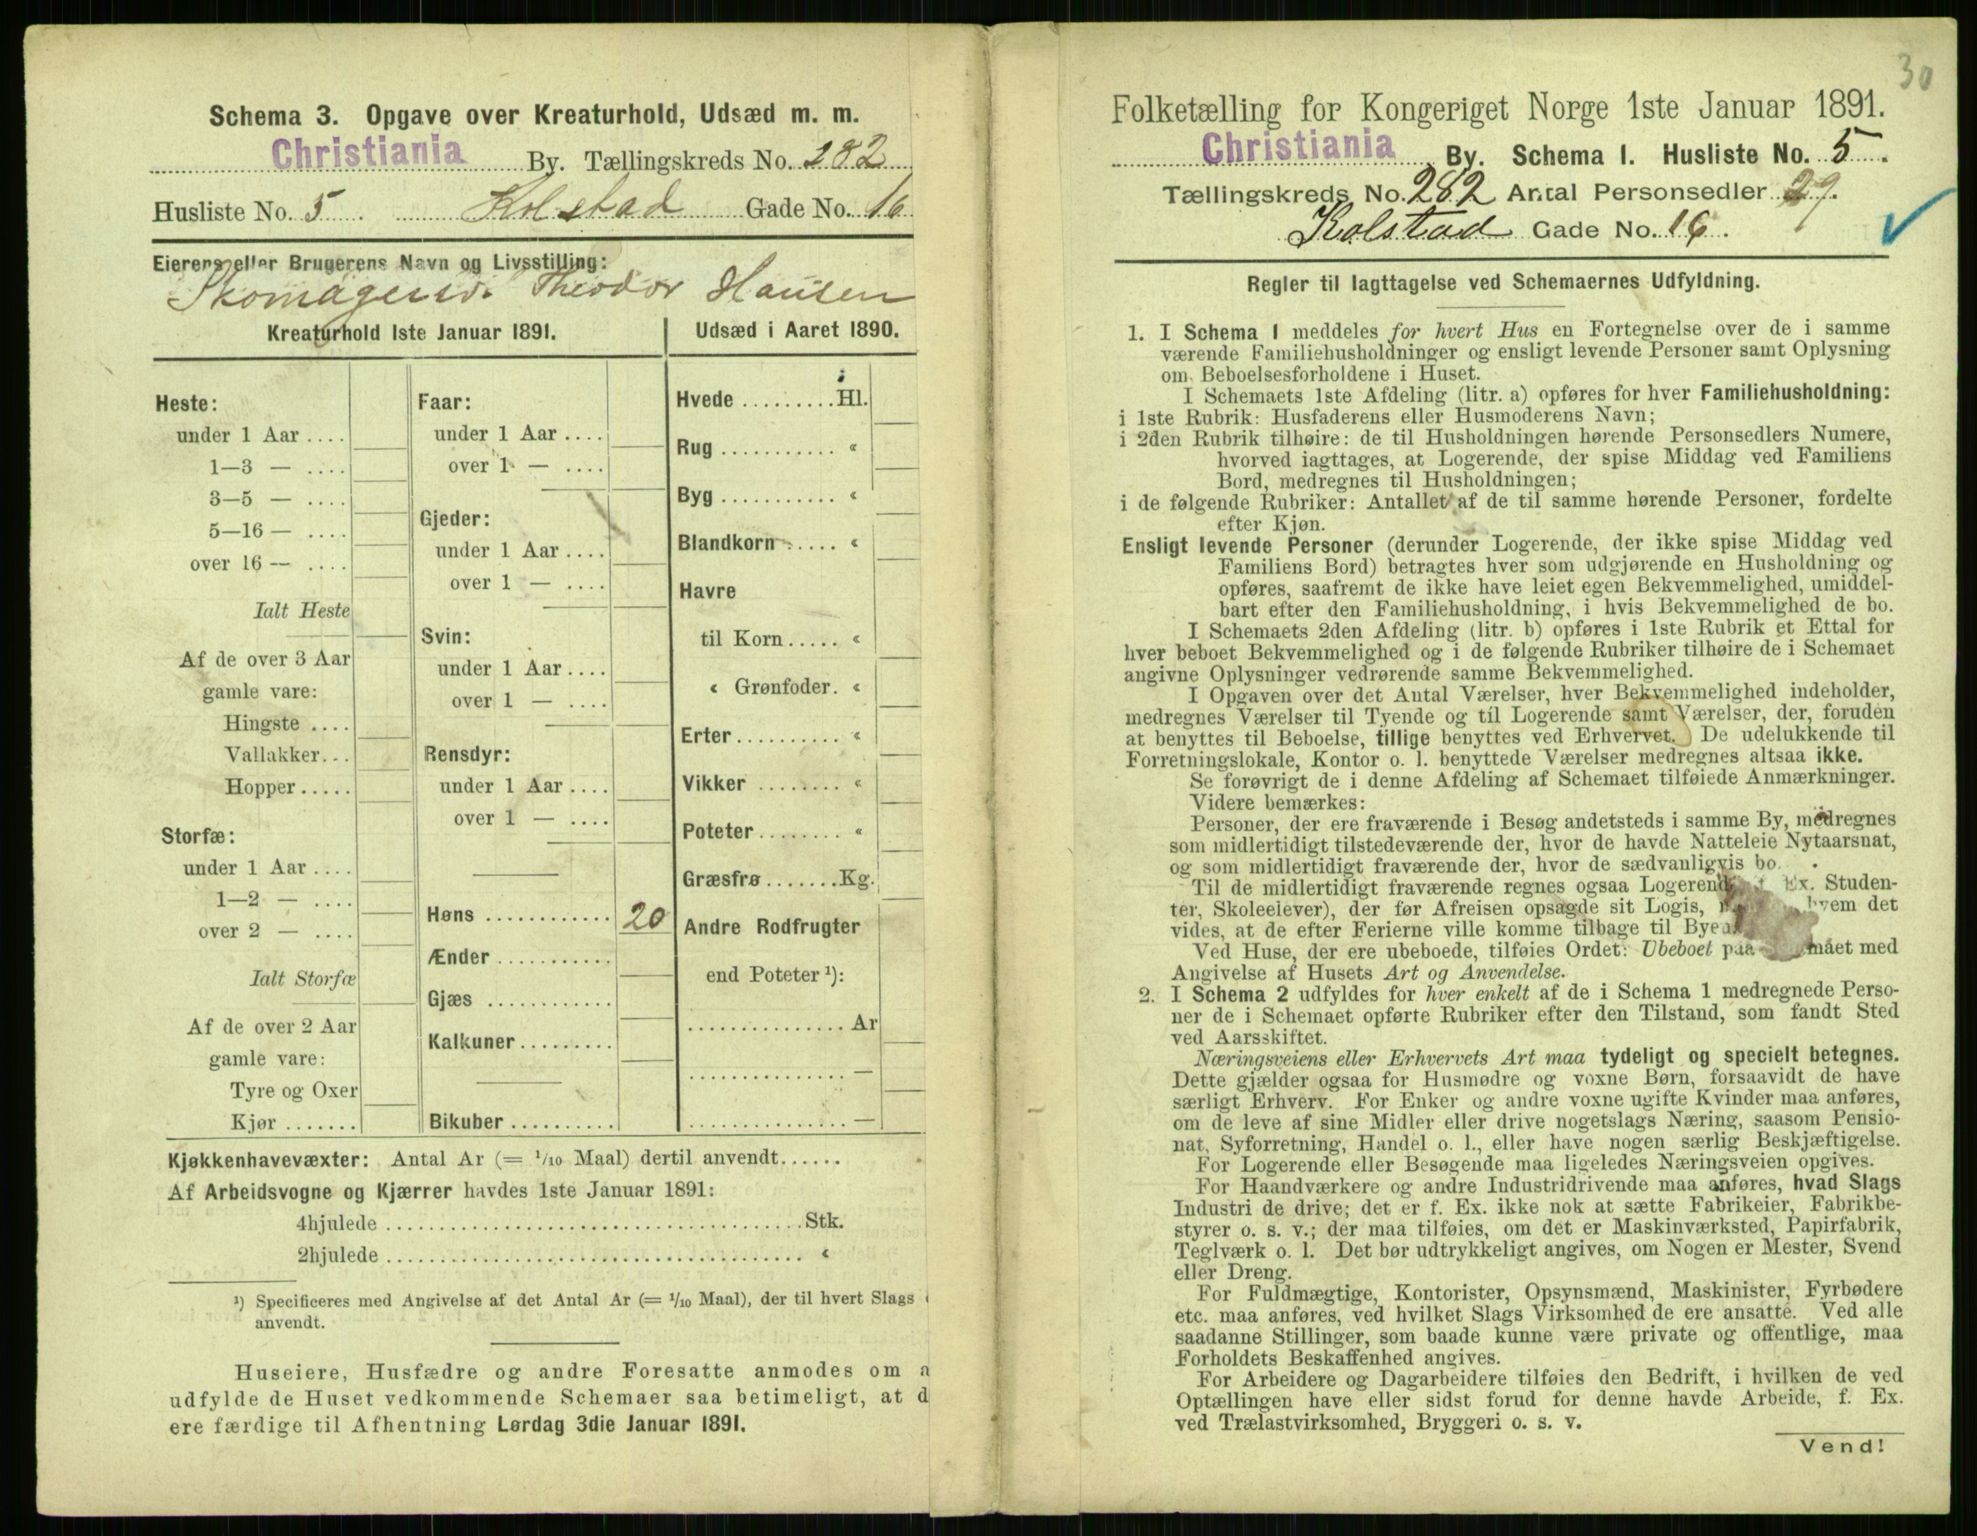 Schema 3. Opgave over Kreaturhold, Udsæd m. m.
Christiania By. Tællingskreds No. 282
Husliste No. 5. Kolstad Gade No. 16
Eierens eller Brugerens Navn og Livsstilling:
Theodor Hansen
Kreaturhold 1ste Januar 1891.
Heste:
under 1 Aar ....
1—3 — ....
3—5 — ....
5—16 — ....
over 16 — ....
Ialt Heste
Af de over 3 Aar
gamle vare:
Hingste ....
Vallakker...
Hopper.....
Storfæ:
under 1 Aar ....
1—2 — ....
over 2 — ....
Ialt Storfæ
Af de over 2 Aar
gamle vare:
Tyre og Oxer
Kjør .......
Faar:
under 1 Aar ....
over 1 — ....
Gjeder:
under 1 Aar ....
over 1 — ....
Svin:
under 1 Aar ....
over 1 — ....
Rensdyr:
under 1 Aar ....
over 1 — ....
Høns ............ 20
Ænder ...........
Gjæs ............
Kalkuner.........
Bikuber ..........
Udsæd i Aaret 1890.
Hvede .........Hl.
Rug ........... «
Byg ........... «
Blandkorn ..... «
Havre
til Korn..... «
« Grønfoder. «
Erter.......... «
Vikker ........ «
Poteter........ «
Græsfrø.......Kg.
Andre Rodfrugter
end Poteter ¹):
............... Ar
............... —
............... —
Kjøkkenhavevæxter: Antal Ar (= 1/10 Maal) dertil anvendt......
Af Arbeidsvogne og Kjærrer havdes 1ste Januar 1891:
4hjulede ........................................Stk.
2hjulede ........................................ «
¹) Specificeres med Angivelse af det Antal Ar (= 1/10 Maal), der til hvert Slags
anvendt.
Huseiere, Husfædre og andre Foresatte anmodes om a
udfylde de Huset vedkommende Schemaer saa betimeligt, at d
ere færdige til Afhentning Lørdag 3die Januar 1891.
30
Folketælling for Kongeriget Norge 1ste Januar 1891.
Christiania By. Schema 1. Husliste No. 5.
Tællingskreds No. 282 Antal Personsedler 29.
Kolstad Gade No. 16.
Regler til Iagttagelse ved Schemaernes Udfyldning.
1. I Schema 1 meddeles for hvert Hus en Fortegnelse over de i samme
værende Familiehusholdninger og ensligt levende Personer samt Oplysning
om Beboelsesforholdene i Huset.
I Schemaets 1ste Afdeling (litr. a) opføres for hver Familiehusholdning:
i 1ste Rubrik: Husfaderens eller Husmoderens Navn;
i 2den Rubrik tilhøire: de til Husholdningen hørende Personsedlers Numere,
hvorved iagttages, at Logerende, der spise Middag ved Familiens
Bord, medregnes til Husholdningen;
i de følgende Rubriker: Antallet af de til samme hørende Personer, fordelte
efter Kjøn.
Ensligt levende Personer (derunder Logerende, der ikke spise Middag ved
Familiens Bord) betragtes hver som udgjørende en Husholdning og
opføres, saafremt de ikke have leiet egen Bekvemmelighed, umiddel-
bart efter den Familiehusholdning, i hvis Bekvemmelighed de bo.
I Schemaets 2den Afdeling (litr. b) opføres i 1ste Rubrik et Ettal for
hver beboet Bekvemmelighed og i de følgende Rubriker tilhøire de i Schemaet
angivne Oplysninger vedrørende samme Bekvemmelighed.
I Opgaven over det Antal Værelser, hver Bekvemmelighed indeholder,
medregnes Værelser til Tyende og til Logerende samt Værelser, der, foruden
at benyttes til Beboelse, tillige benyttes ved Erhvervet. De udelukkende til
Forretningslokale, Kontor o. l. benyttede Værelser medregnes altsaa ikke.
Se forøvrigt de i denne Afdeling af Schemaet tilføiede Anmærkninger.
Videre bemærkes:
Personer, der ere fraværende i Besøg andetsteds i samme By, medregnes
som midlertidigt tilstedeværende der, hvor de havde Natteleie Nytaarsnat,
og som midlertidigt fraværende der, hvor de sædvanligvis bo.
Til de midlertidigt fraværende regnes ogsaa Logerend Ex. Studen-
ter, Skoleelever), der før Afreisen opsagde sit Logis, hvem det
vides, at de efter Ferierne ville komme tilbage til Byen
Ved Huse, der ere ubeboede, tilføies Ordet: Ubeboet paa mået med
Angivelse af Husets Art og Anvendelse.
2. I Schema 2 udfyldes for hver enkelt af de i Schema 1 medregnede Perso-
ner de i Schemaet opførte Rubriker efter den Tilstand, som fandt Sted
ved Aarsskiftet.
Næringsveiens eller Erhvervets Art maa tydeligt og specielt betegnes.
Dette gjælder ogsaa for Husmødre og voxne Børn, forsaavidt de have
særligt Erhverv. For Enker og andre voxne ugifte Kvinder maa anføres,
om de leve af sine Midler eller drive nogetslags Næring, saasom Pensio-
nat, Syforretning, Handel o. l., eller have nogen særlig Beskjæftigelse.
For Logerende eller Besøgende maa ligeledes Næringsveien opgives.
For Haandværkere og andre Industridrivende maa anføres, hvad Slags
Industri de drive; det er f. Ex. ikke nok at sætte Fabrikeier, Fabrikbe-
styrer o. s. v.; der maa tilføies, om det er Maskinværksted, Papirfabrik,
Teglværk o. l. Det bør udtrykkeligt angives, om Nogen er Mester, Svend
eller Dreng.
For Fuldmægtige, Kontorister, Opsynsmænd, Maskinister, Fyrbødere
etc. maa anføres, ved hvilket Slags Virksomhed de ere ansatte. Ved alle
saadanne Stillinger, som baade kunne være private og offentlige, maa
Forholdets Beskaffenhed angives.
For Arbeidere og Dagarbeidere tilføies den Bedrift, i hvilken de ved
Optællingen have eller sidst forud for denne havde Arbeide, f. Ex.
ved Trælastvirksomhed, Bryggeri o. s. v.
Vend!